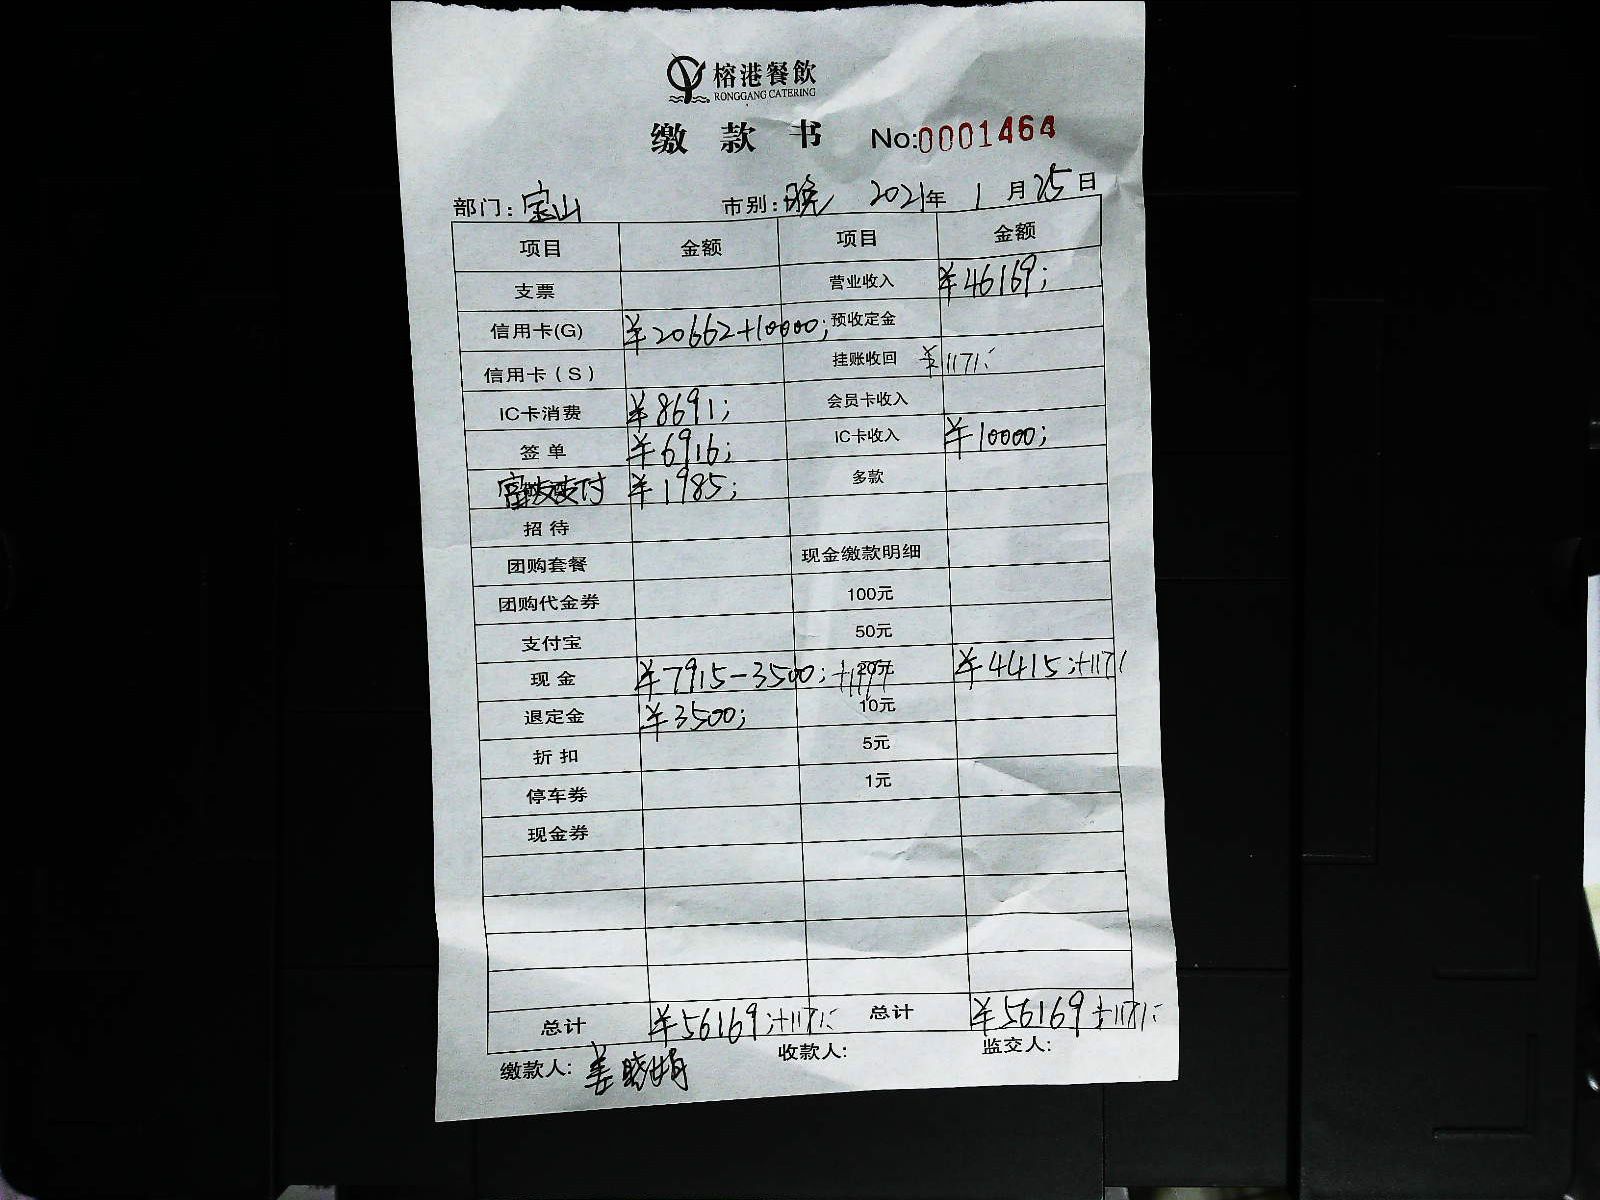 榕港餐飲
RONGGANG CATERING
缴款书 No:0001464
部门: 宝山 市别: 晚 2021年 1月25日
项目 金额 项目 金额
支票 营业收入 ¥46169;
信用卡(G) ¥20662+10000; 预收定金
信用卡(S) 挂账收回 ¥1171;
IC卡消费 ¥8691; 会员卡收入
签单 ¥6916; IC卡收入 ¥10000;
支付 ¥1985; 多款
招待
团购套餐 现金缴款明细
团购代金券 100元
支付宝 50元
现金 ¥7915-3500;+1171 20元 ¥4415;+1171
退定金 ¥3500; 10元
折扣 5元
停车券 1元
现金券
总计 ¥56169;+1171; 总计 ¥56169+1171;
缴款人: 姜晓娟 收款人: 监交人: